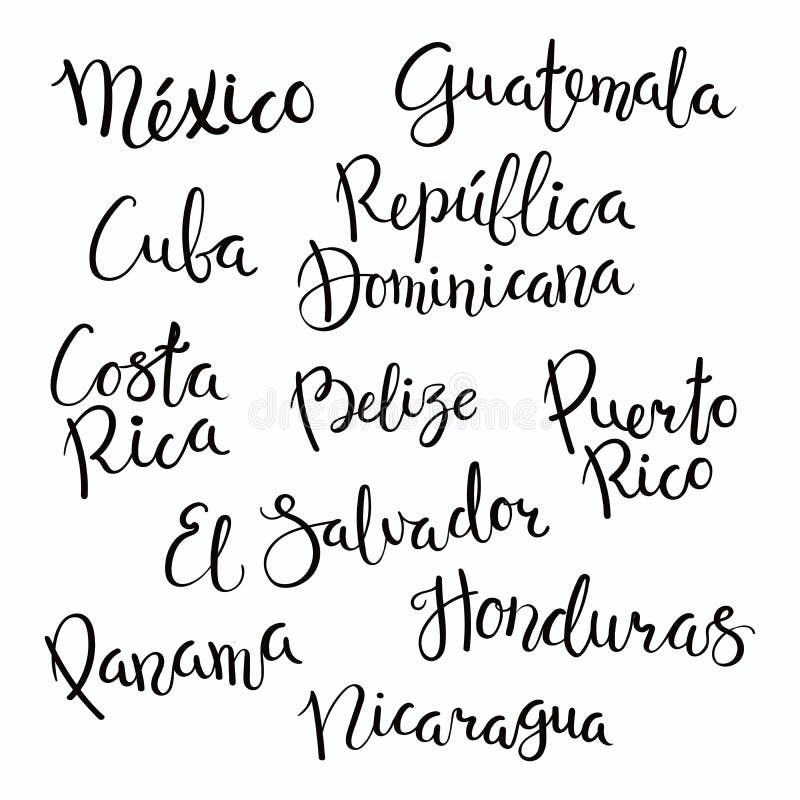 México
Guatemala
Cuba
República
Dominicana
Costa
Rica
Belize
Puerto
Rico
El Salvador
Honduras
Panama
Nicaragua
dreamstime